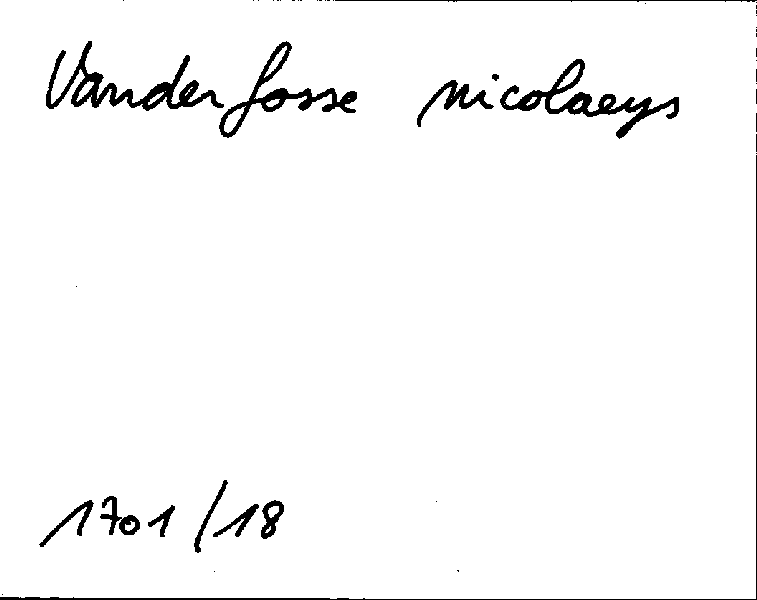 Vanderfosse nicolaeys
1701/18